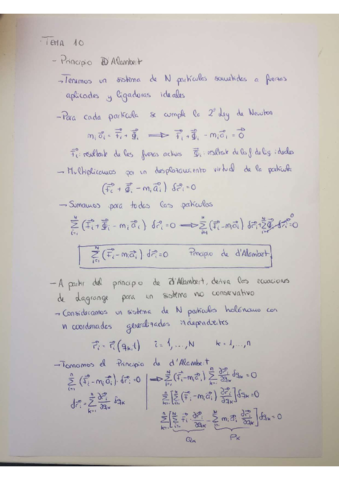 TEMA 10
- Principio D'Alambert
- Tenemos un sistema de N partículas sometidas a fuerzas
aplicadas y ligaduras ideales
- Para cada partícula se cumple la 2ª ley de Newton
m_i a⃗_i = F⃗_i + φ⃗_i ⟹ F⃗_i + φ⃗_i - m_i a⃗_i = 0⃗
F⃗_i: result de las fuerzas activas φ⃗_i: result de la f de lig ideales
- Multiplicamos por un desplazamiento virtual de la partícula
(F⃗_i + φ⃗_i - m_i a⃗_i) δr⃗_i = 0
- Sumamos para todas las partículas
∑ (F⃗_i + φ⃗_i - m_i a⃗_i) δr⃗_i = 0 ⟹ ∑ (F⃗_i - m_i a⃗_i) δr⃗_i + ∑ φ⃗_i δr⃗_i = 0
∑ (F⃗_i - m_i a⃗_i) δr⃗_i = 0 Principio de d'Alambert
- A partir del principio de D'Alambert, deriva las ecuaciones
de lagrange para un sistema no conservativo
- Consideramos un sistema de N partículas holónomo con
n coordenadas generalizadas independientes
r⃗_i = r⃗_i (q_k, t) i = 1, ..., N k = 1, ..., n
- Tomamos el Principio de d'Alambert
∑ (F⃗_i - m_i a⃗_i) δr⃗_i = 0 ⟶ ∑ (F⃗_i - m_i a⃗_i) ∑ ∂r⃗_i/∂q_k δq_k = 0
δr⃗_i = ∑ ∂r⃗_i/∂q_k δq_k
∑ [∑ (F⃗_i - m_i a⃗_i) ∂r⃗_i/∂q_k] δq_k = 0
∑ [∑ F⃗_i ∂r⃗_i/∂q_k - ∑ m_i a⃗_i ∂r⃗_i/∂q_k] δq_k = 0
Q_k P_k